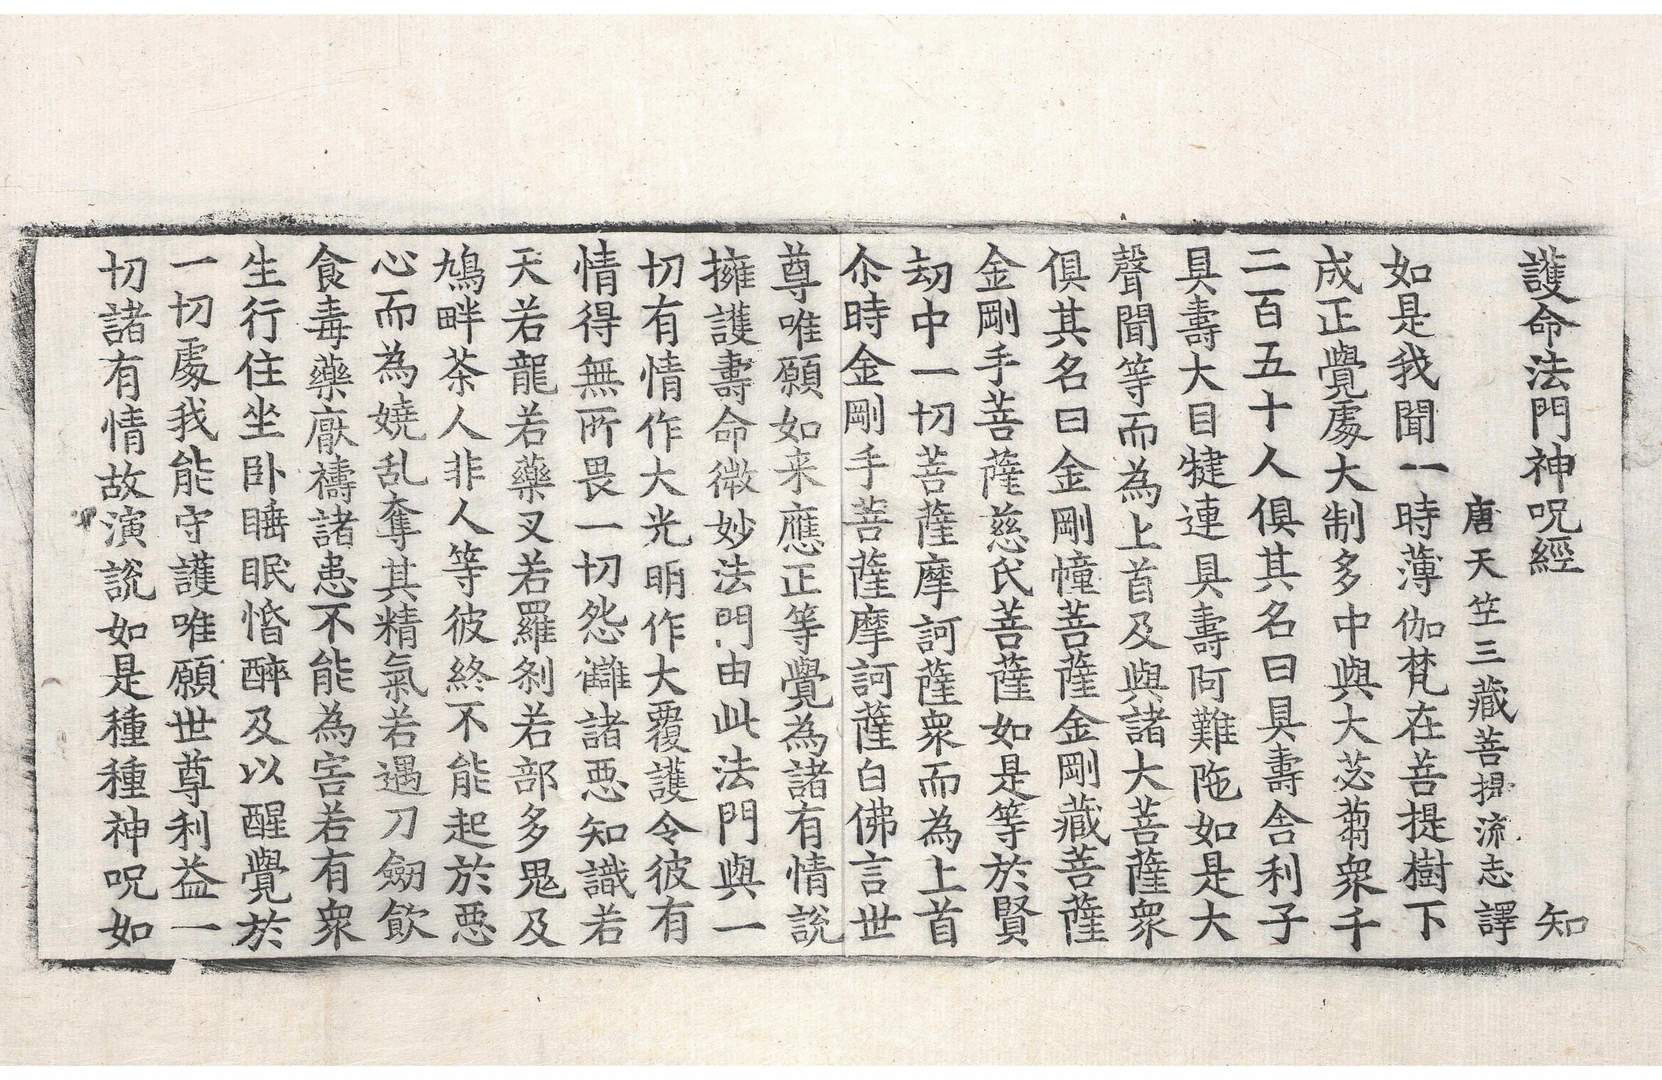 護命法門神呪經 知
唐天竺三藏菩提流志譯
如是我聞一時薄伽梵在菩提樹下
成正覺處大制多中與大苾蒭衆千
二百五十人俱其名曰具壽舍利子
具壽大目犍連具壽阿難陁如是大
聲聞等而為上首及與諸大菩薩衆
俱其名曰金剛幢菩薩金剛藏菩薩
金剛手菩薩慈氏菩薩如是等於賢
劫中一切菩薩摩訶薩衆而為上首
尒時金剛手菩薩摩訶薩白佛言世
尊唯願如来應正等覺為諸有情說
擁護壽命微妙法門由此法門與一
切有情作大光明作大覆護令彼有
情得無所畏一切怨讎諸惡知識若
天若龍若藥叉若羅剎若部多鬼及
鳩畔荼人非人等彼終不能起於惡
心而為嬈乱奪其精氣若遇刀劒飲
食毒藥厭禱諸患不能為害若有衆
生行住坐卧睡眠惛醉及以醒覺於
一切處我能守護唯願世尊利益一
切諸有情故演說如是種種神呪如